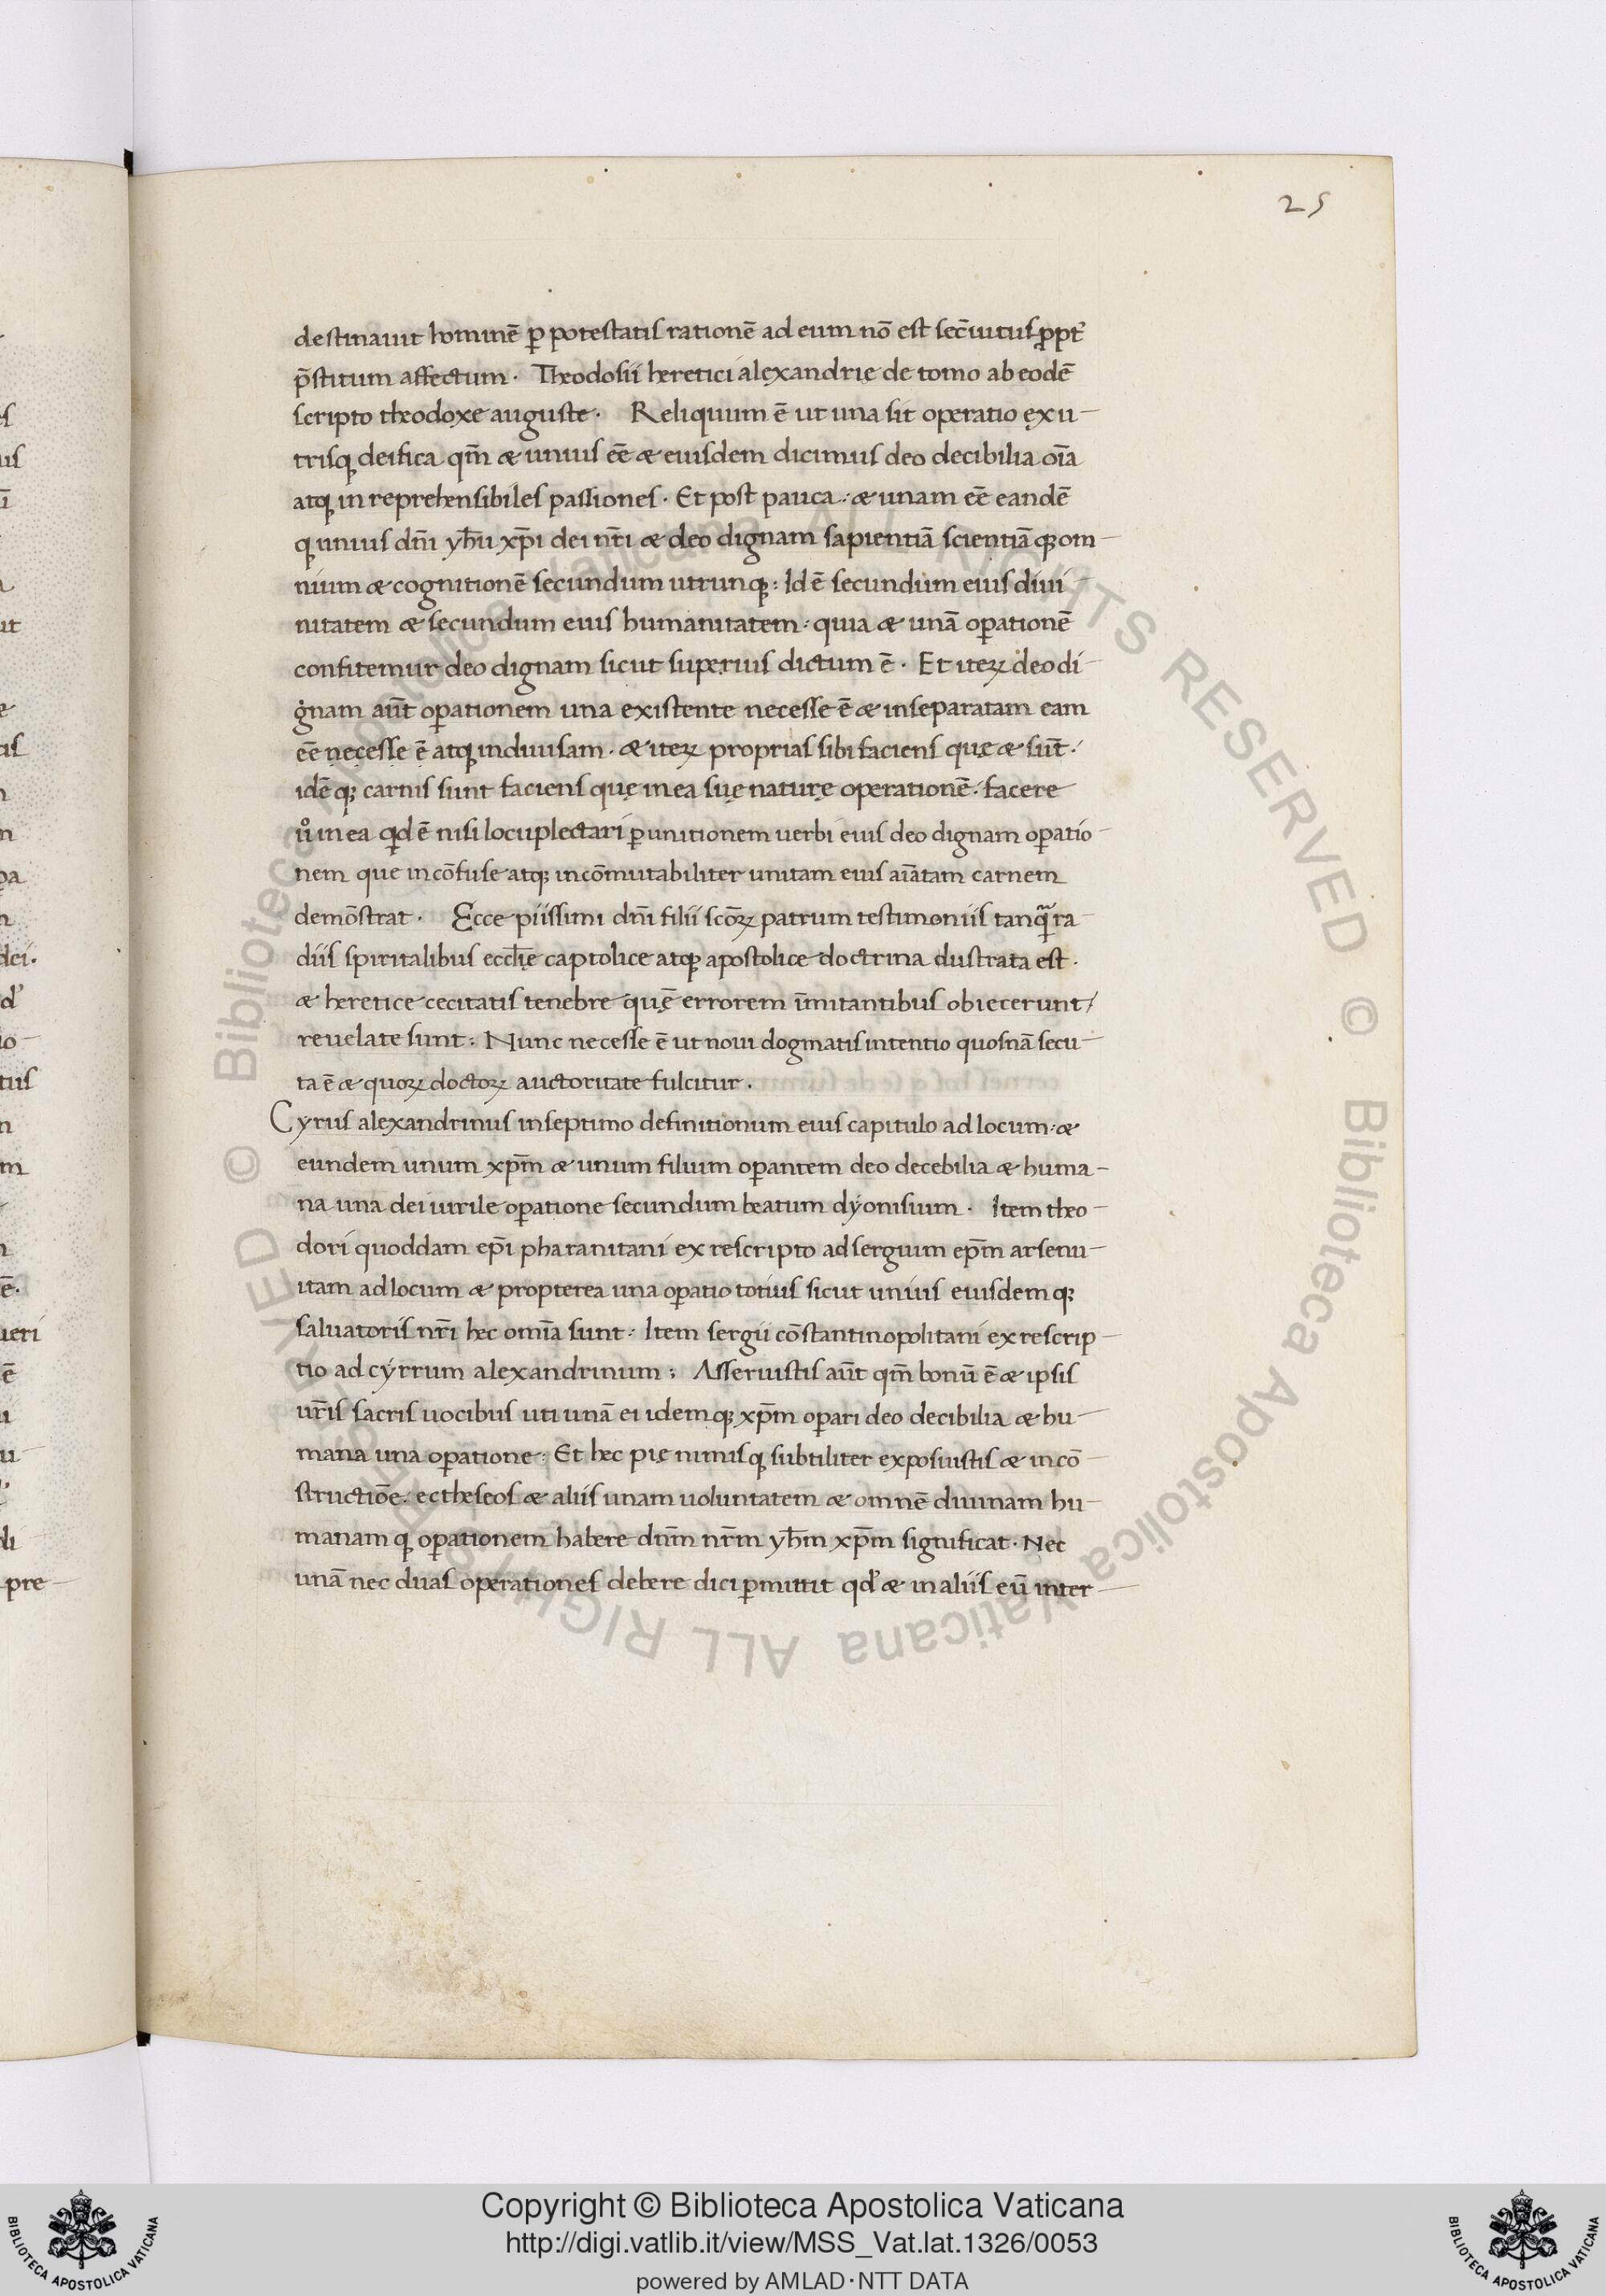 25
destinauit hominē ꝑ potestatis rationē ad eum nō est
p̄stitum affectum. Theodosii heretici alexandrię de tomo ab eodē
scripto theodoxe auguste. Reliquum ē ut una sit operatio ex u-
trisq; deifica qm̄ æ unius eē æ eiusdem dicimus deo decibilia oīa
atq; in reprehensibiles passiones. Et post pauca: æ unam eē eandē
q; unius dn̄i yħu xp̄i dei nr̄i æ deo dignam sapientiā scientiāq; om-
nium æ cognitionē secundum utrunq;: Id ē secundum eius diui-
nitatem æ secundum eius humanitatem: quia æ unā oꝑationē
confitemur deo dignam sicut superius dictum ē. Et iteꝝ deo di-
gnam aūt oꝑationem una existente necesse ē æ inseparatam eam
eē necesse ē atq; indiuisam. æ iteꝝ proprias sibi faciens quę æ sūt:
idē q; carnis sunt faciens quę in ea suę naturę operationē: facere
u͛o in ea qd ē nisi locuplectari ꝑ unitionem uerbi eius deo dignam oꝑatio-
nem que incōfuse atq; incōmutabiliter unitam eius aīatam carnem
demōstrat. Ecce piissimi dn̄i filii scōꝝ patrum testimoniis tanq̄ ra-
diis spiritalibus eccl̄ię captolice atq; apostolice doctrina dustrata est.
æ heretice cecitatis tenebre quę̄ errorem īmitantibus obiecerunt/
reuelate sunt: Nunc necesse ē ut noui dogmatis intentio quosnā secu-
ta ē æ quoꝝ doctoꝝ auctoritate fulcitur.
Cyrus alexandrinus in septimo definitionum eius capitulo ad locum: æ
eundem unum xp̄m æ unum filium oꝑantem deo decebilia æ huma-
na una dei uirile oꝑatione secundum beatum dyonisium. Item theo-
dori quoddam ep̄i pharanitani ex rescripto ad sergium ep̄m arsenu-
itam ad locum æ propterea una oꝑatio totius sicut unius eiusdemq;
saluatoris nr̄i hec omīa sunt: Item sergii cōstantinopolitani ex rescrip-
tio ad cyrrum alexandrinum; Asseruistis aūt qm̄ bonū ē æ ipsis
ur̄is sacris uocibus uti unā ei idemq; xp̄m oꝑari deo decibilia æ hu-
mana una oꝑatione: Et hec pię nimisq; subtiliter exposuistis æ in cō-
structiōe: ectheseos æ aliis unam uoluntatem æ omnē diuinam hu-
manamq; oꝑationem habere dn̄m nr̄m yħm xp̄m significat. Nec
unā nec duas operationes debere dici ꝑmittit qd̓ æ in aliis eū inter-
Copyright © Biblioteca Apostolica Vaticana
http://digi.vatlib.it/view/MSS_Vat.lat.1326/0053
powered by AMLAD·NTT DATA